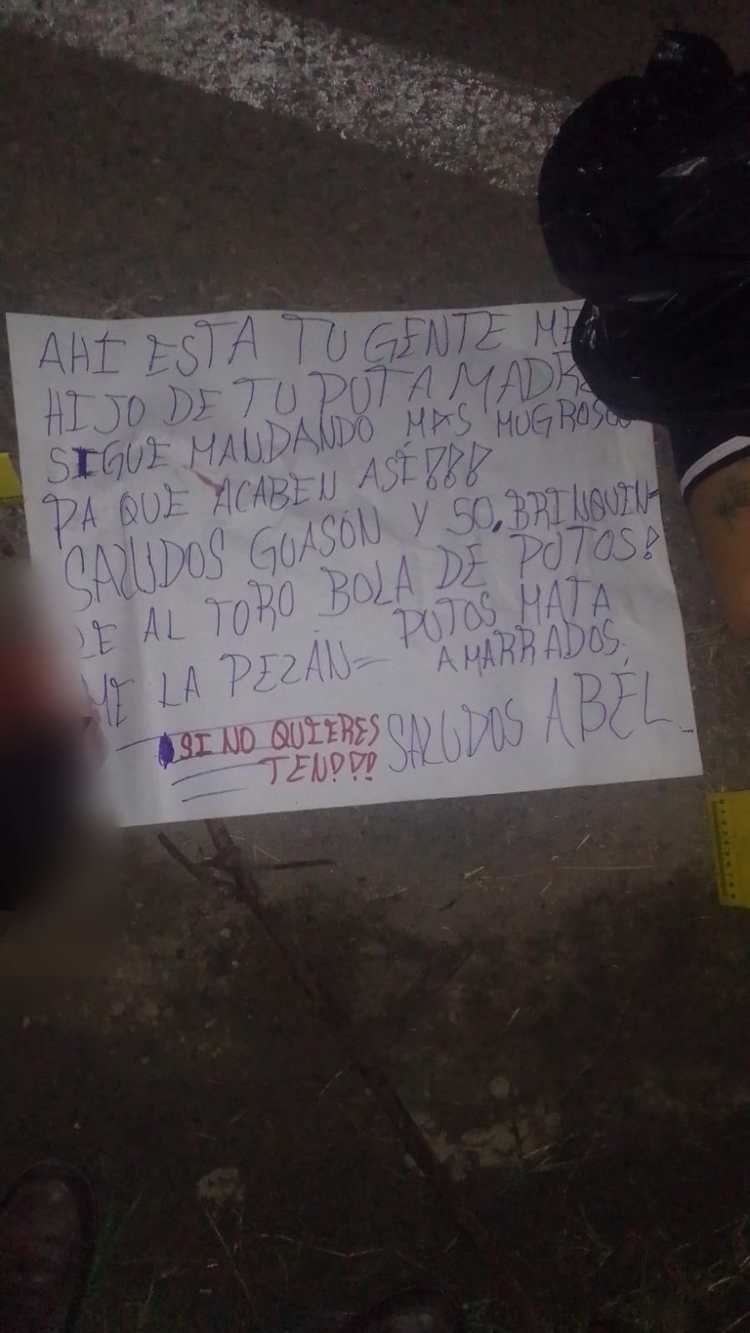 AHÍ ESTA TU GENTE
HIJO DE TU PUTA MADRE
SIGUE MANDANDO MAS MUGROSOS
PA QUE ACABEN ASÍ!!!
SALUDOS GUASÓN Y 50, BRINQUIN-
LE AL TORO BOLA DE PUTOS!
ME LA PEZÁN= PUTOS MATA
AMARRADOS.
SI NO QUIERES
TEN!!!
SALUDOS ABÉL